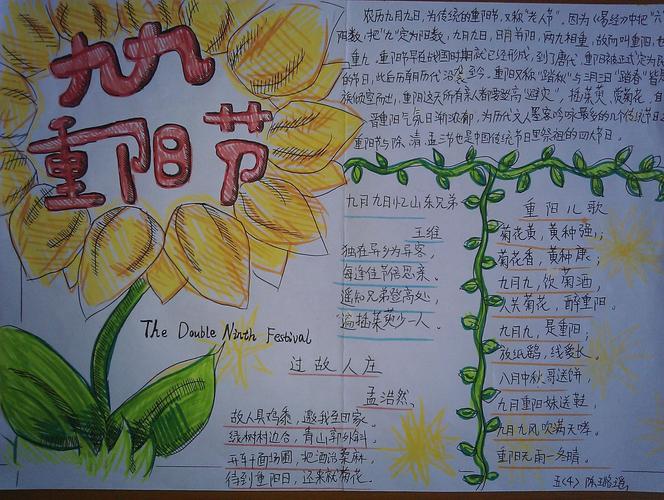 九九
重阳节
农历九月九日，为传统的重阳节，又称"老人节"。因为《易经》中把"六
阳数，把"九"定为阳数，九月九日，日月并阳，两九相重，故而叫重阳，也
重九，重阳节早在战国时期就已经形成，到了唐代，重阳被正式定为民
的节日，此后历朝历代沿袭至今，重阳又称"踏秋"与三月三日"踏春"皆是
族倾室而出，重阳这天所有亲人都要登高"避灾"，插茱萸、赏菊花。自
晋重阳气氛日渐浓郁，为历代文人墨客吟咏最多的几个传统节日之
重阳与除、清、盂三节也是中国传统节日里祭祖的四大节日。
九月九日忆山东兄弟
王维
独在异乡为异客，
每逢佳节倍思亲。
遥知兄弟登高处，
遍插茱萸少一人。
重阳儿歌
菊花黄，黄种强；
菊花香，黄种康；
九月九，饮菊酒，
人共菊花，醉重阳。
九月九，是重阳；
放纸鹞，线爱长。
八月中秋哥送饼，
九月重阳妹送鞋，
九月九风吹满天哗。
重阳无雨一冬晴。
The Double Ninth Festival
过故人庄
孟浩然
故人具鸡黍，邀我至田家。
绿树村边合，青山郭外斜。
开轩面场圃，把酒话桑麻。
待到重阳日，还来就菊花。
五（4）陈璐瑶